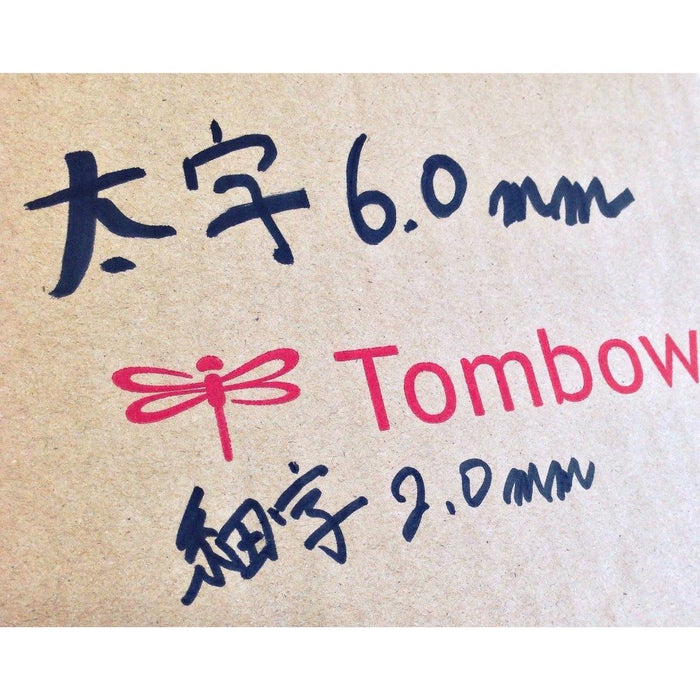 太字 6.0mm
Tombow
細字 2.0mm